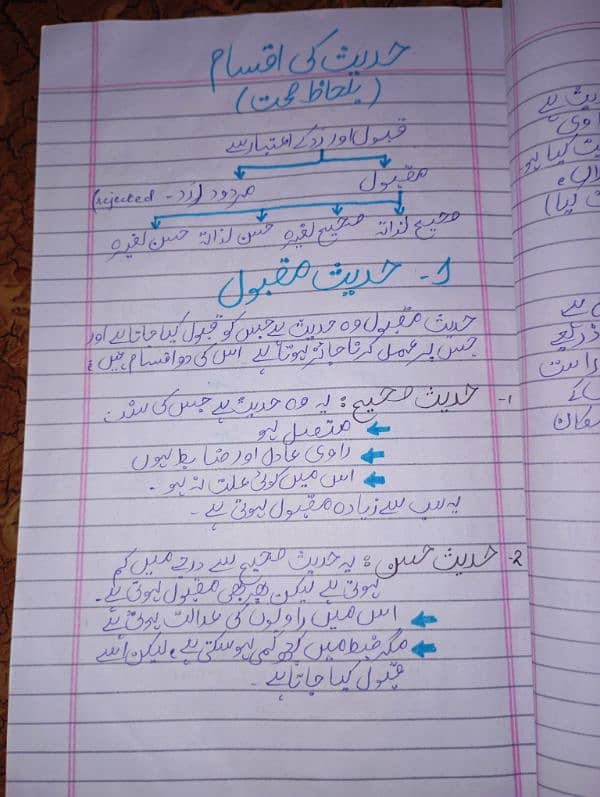 حدیث کی اقسام
(بلحاظ صحت)
قبول اور رد کے اعتبار سے
مقبول مردود (رَد - rejected)
صحیح لذاتہ صحیح لغیرہ حسن لذاتہ حسن لغیرہ
1- حدیث مقبول
حدیث مقبول وہ حدیث ہے جس کو قبول کیا جاتا ہے اور
جس پر عمل کرنا جائز ہوتا ہے اس کی دو اقسام ہیں:
1- حدیث صحیح: یہ وہ حدیث ہے جس کی سند
متصل ہو
راوی عادل اور ضابط ہوں
اس میں کوئی علت نہ ہو۔
یہ سب سے زیادہ مقبول ہوتی ہے۔
2- حدیث حسن: یہ حدیث صحیح سے درجے میں کم
ہوتی ہے لیکن پھر بھی مقبول ہوتی ہے۔
اس میں راویوں کی عدالت ہوتی ہے
مگر ضبط میں کچھ کمی ہو سکتی ہے، لیکن اسے
قبول کیا جاتا ہے۔
حدیث ہے
راوی
کیا ہو
کیا)
ہے
ذریعے
کے